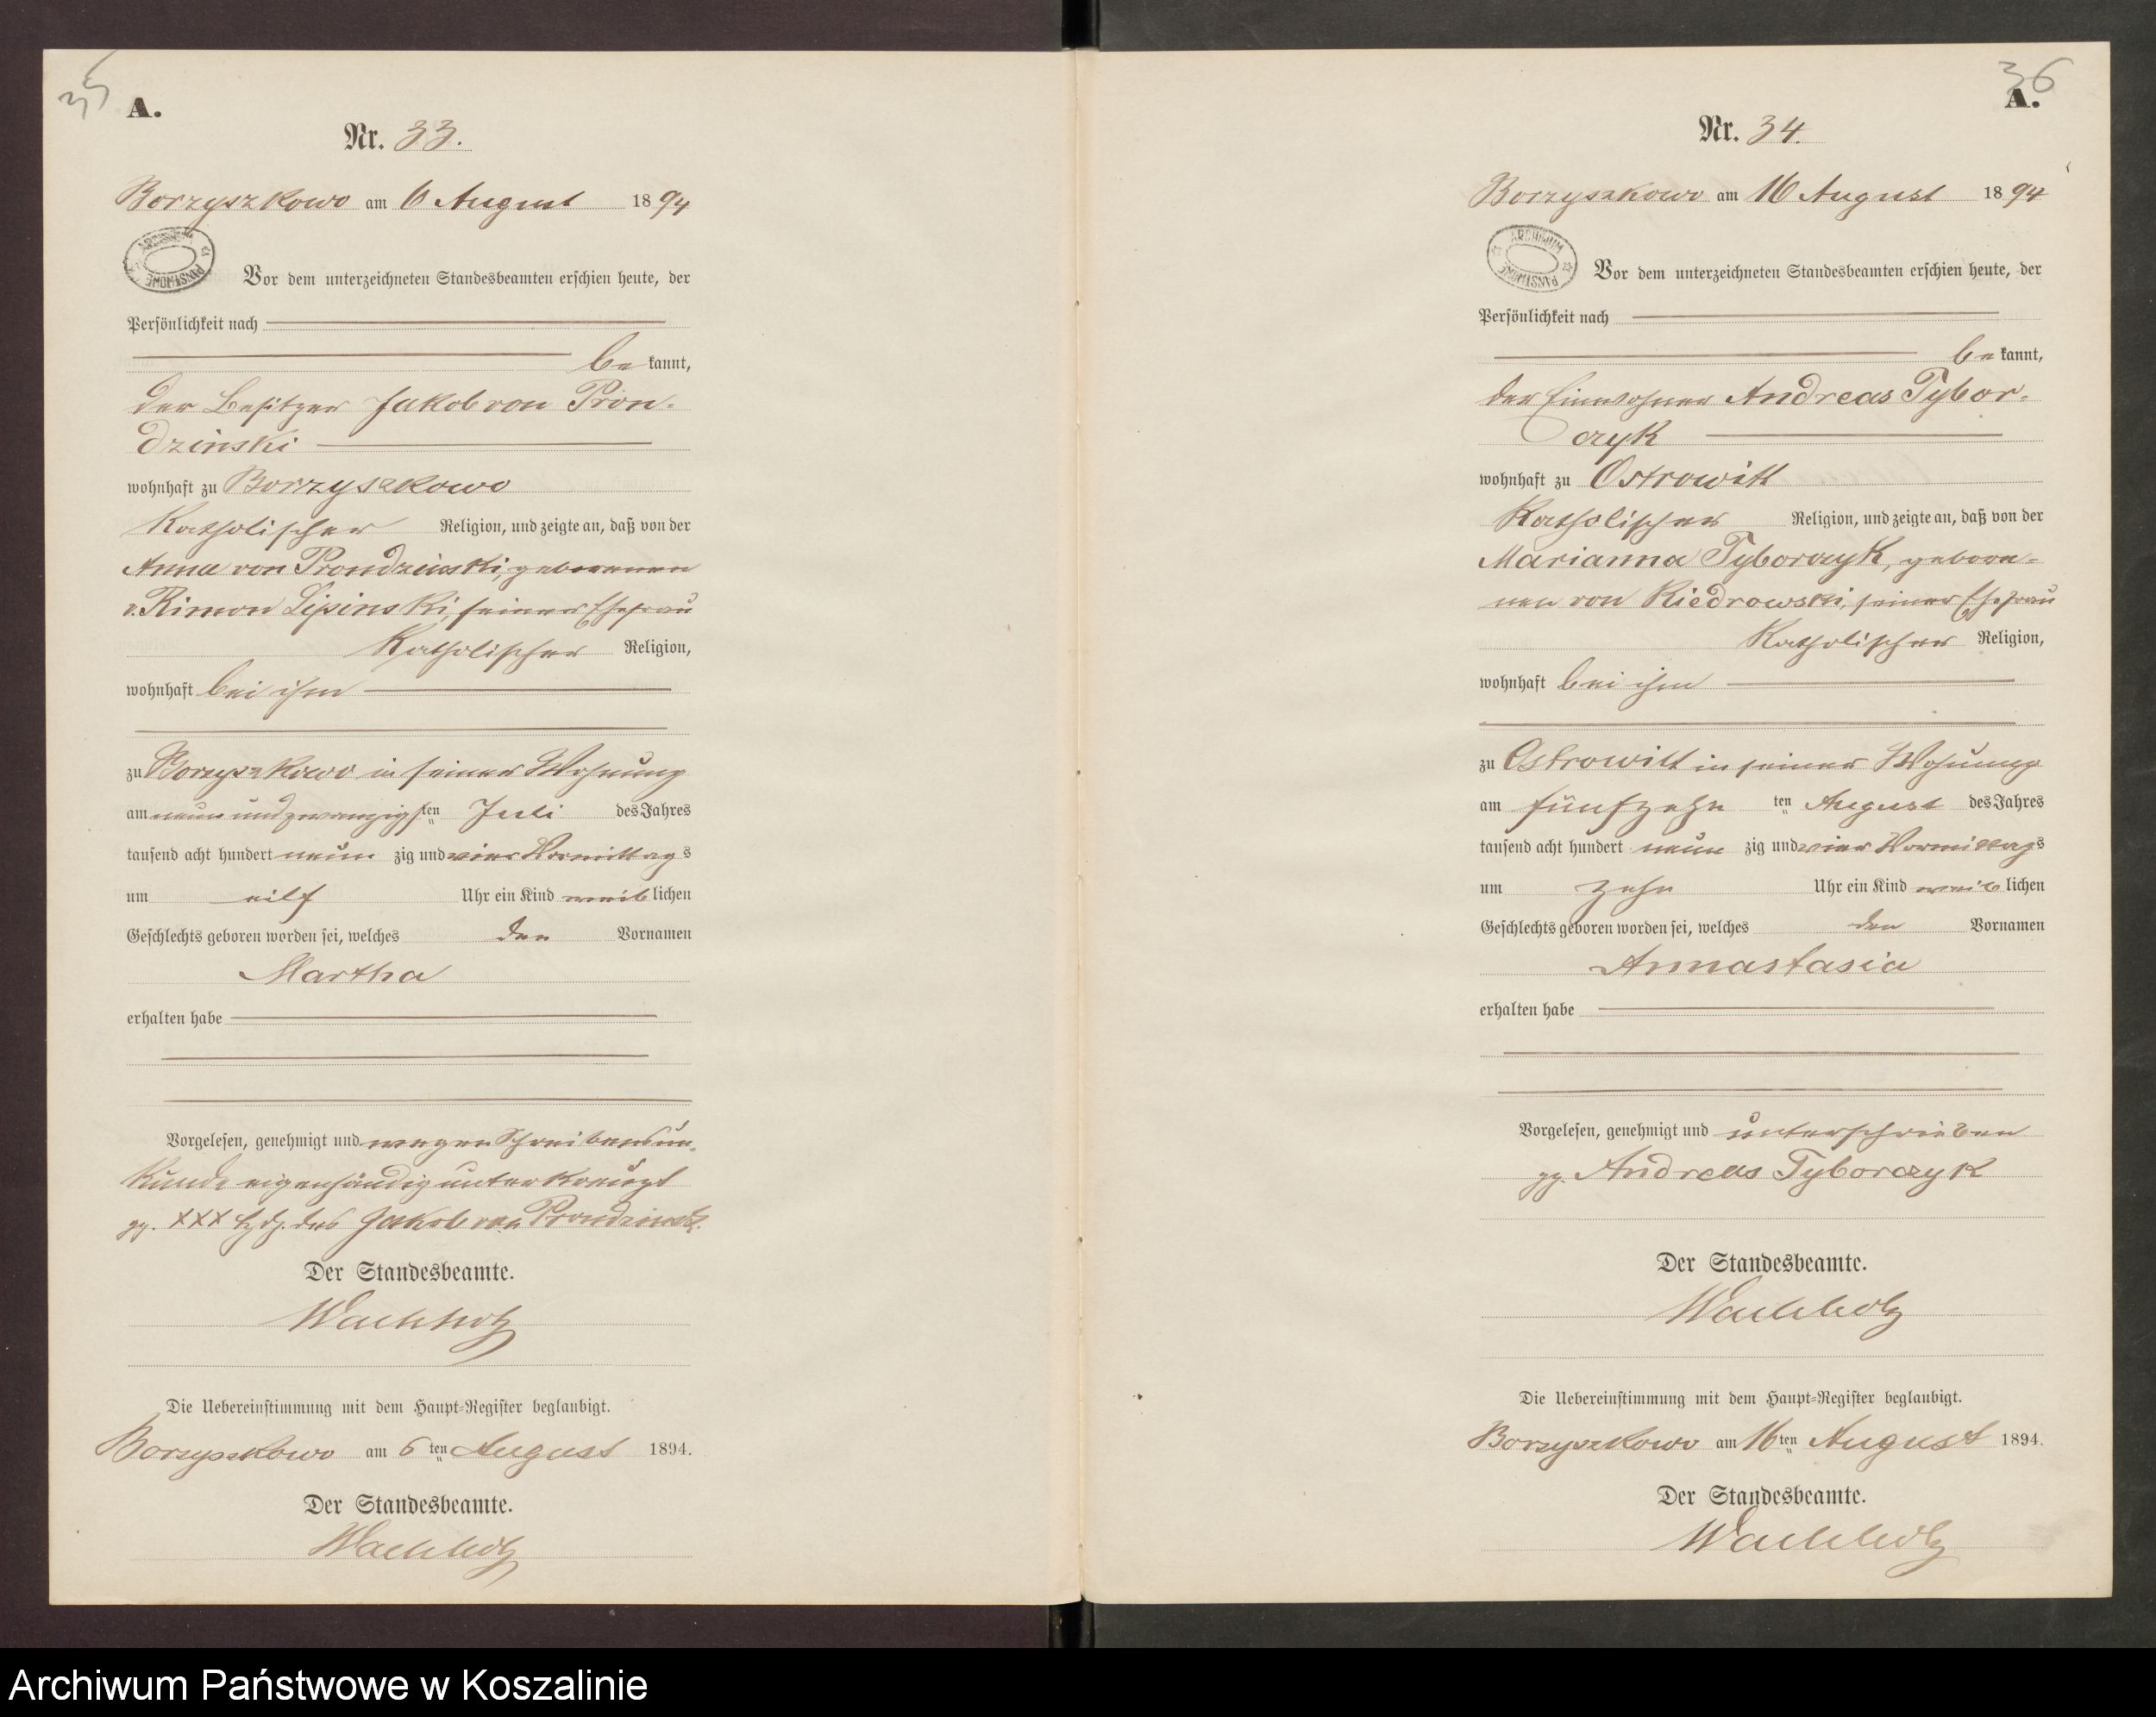 35
A.
Nr. 33.
Borzyszkowo am 6 August 1894
ARCHIWUM PAŃSTWOWE
Vor dem unterzeichneten Standesbeamten erschien heute, der
Persönlichkeit nach
bekannt,
der Besitzer Jakob von Pron-
dzinski
wohnhaft zu Borzyszkowo
Katholischer Religion, und zeigte an, daß von der
Anna von Prondzinski, geborenen
v. Rimon Lipinski, seiner Ehefrau
Katholischer Religion,
wohnhaft bei ihm
zu Borzyszkowo in seiner Wohnung
am neun und zwanzigsten Juli des Jahres
tausend acht hundert neunzig und vier Vormittags
um eilf Uhr ein Kind weiblichen
Geschlechts geboren worden sei, welches den Vornamen
Martha
erhalten habe
Vorgelesen, genehmigt und wegen Schreibensun-
kunde eigenhändig unterkreuzt
gz. XXX Hdz. des Jakob von Prondzinski.
Der Standesbeamte.
Wachholz
Die Uebereinstimmung mit dem Haupt-Register beglaubigt.
Borzyszkowo am 6ten August 1894.
Der Standesbeamte.
Wachholz
36
A.
Nr. 34.
Borzyszkowo am 16 August 1894
ARCHIWUM PAŃSTWOWE
Vor dem unterzeichneten Standesbeamten erschien heute, der
Persönlichkeit nach
bekannt,
der Einwohner Andreas Tybor-
czyk
wohnhaft zu Ostrowitt
Katholischer Religion, und zeigte an, daß von der
Marianna Tyborczyk, gebore-
nen von Kiedrowski, seiner Ehefrau
Katholischer Religion,
wohnhaft bei ihm
zu Ostrowitt in seiner Wohnung
am fünfzehnten August des Jahres
tausend acht hundert neunzig und vier Vormittags
um zehn Uhr ein Kind weiblichen
Geschlechts geboren worden sei, welches den Vornamen
Annastasia
erhalten habe
Vorgelesen, genehmigt und unterschrieben
gz. Andreas Tyborczyk
Der Standesbeamte.
Wachholz
Die Uebereinstimmung mit dem Haupt-Register beglaubigt.
Borzyszkowo am 16ten August 1894.
Der Standesbeamte.
Wachholz
Archiwum Państwowe w Koszalinie